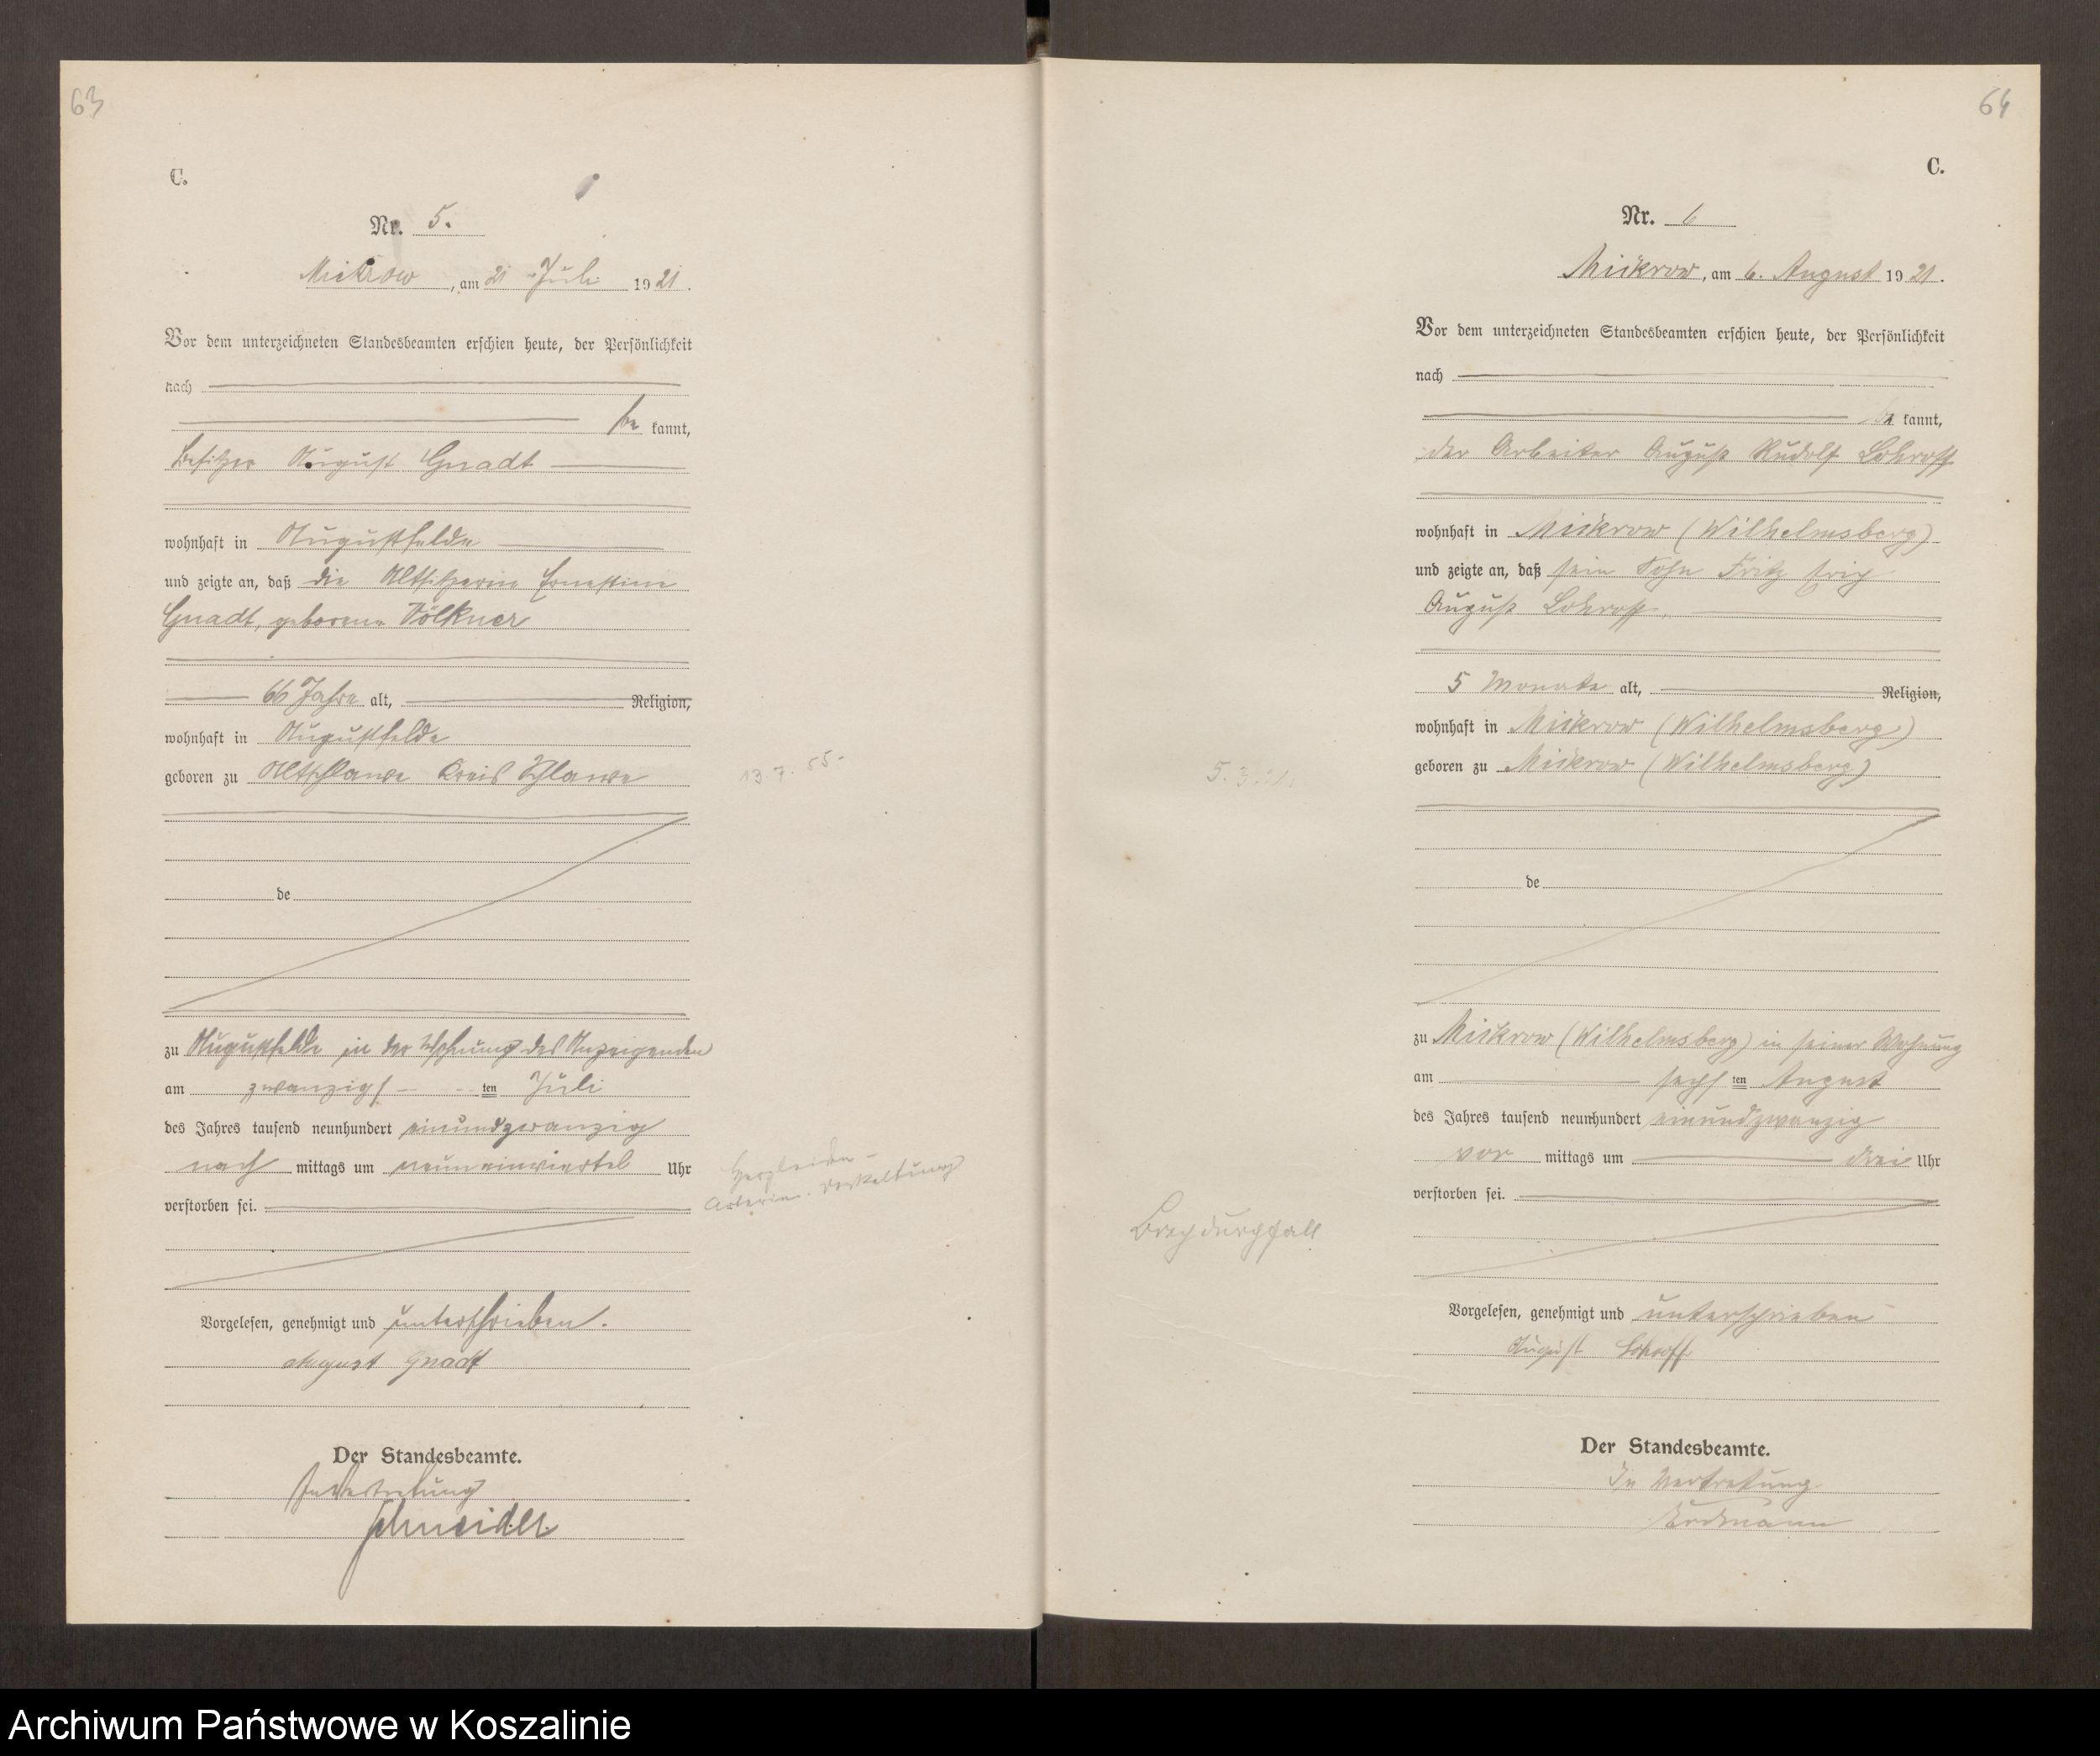 63
C.
Nr. 5.
Mickrow, am 21 Juli 1921.
Vor dem unterzeichneten Standesbeamten erschien heute, der Persönlichkeit
nach
be kannt,
Besitzer August Gnadt
wohnhaft in Augustfelde
und zeigte an, daß die Altsitzerin Ernestine
Gnadt, geborene Völkner
66 Jahre alt, Religion,
wohnhaft in Augustfelde
geboren zu Altschlawe Kreis Schlawe
13 7. 55-
de
zu Augustfelde in der Wohnung des Anzeigenden
am zwanzigs ten Juli
des Jahres tausend neunhundert einundzwanzig
nach mittags um neuneinviertel Uhr
verstorben sei.
Herzleiden -
Arterien. Verkalkung
Vorgelesen, genehmigt und unterschrieben.
August Gnadt
Der Standesbeamte.
In Vertretung
Schneider
64
C.
Nr. 6
Mickrow, am 6. August 1921.
Vor dem unterzeichneten Standesbeamten erschien heute, der Persönlichkeit
nach
be kannt,
der Arbeiter August Rudolf Lohroff
wohnhaft in Mickrow (Wilhelmsberg)
und zeigte an, daß sein Sohn Fritz Erich
August Lohroff,
5 Monate alt, Religion,
wohnhaft in Mickrow (Wilhelmsberg)
geboren zu Mickrow (Wilhelmsberg)
5. 3. 21.
de
zu Mickrow (Wilhelmsberg) in seiner Wohnung
am sechs ten August
des Jahres tausend neunhundert einundzwanzig
vor mittags um drei Uhr
verstorben sei.
Brechdurchfall
Vorgelesen, genehmigt und unterschrieben
August Lohroff
Der Standesbeamte.
In Vertretung
Erdmann
Archiwum Państwowe w Koszalinie